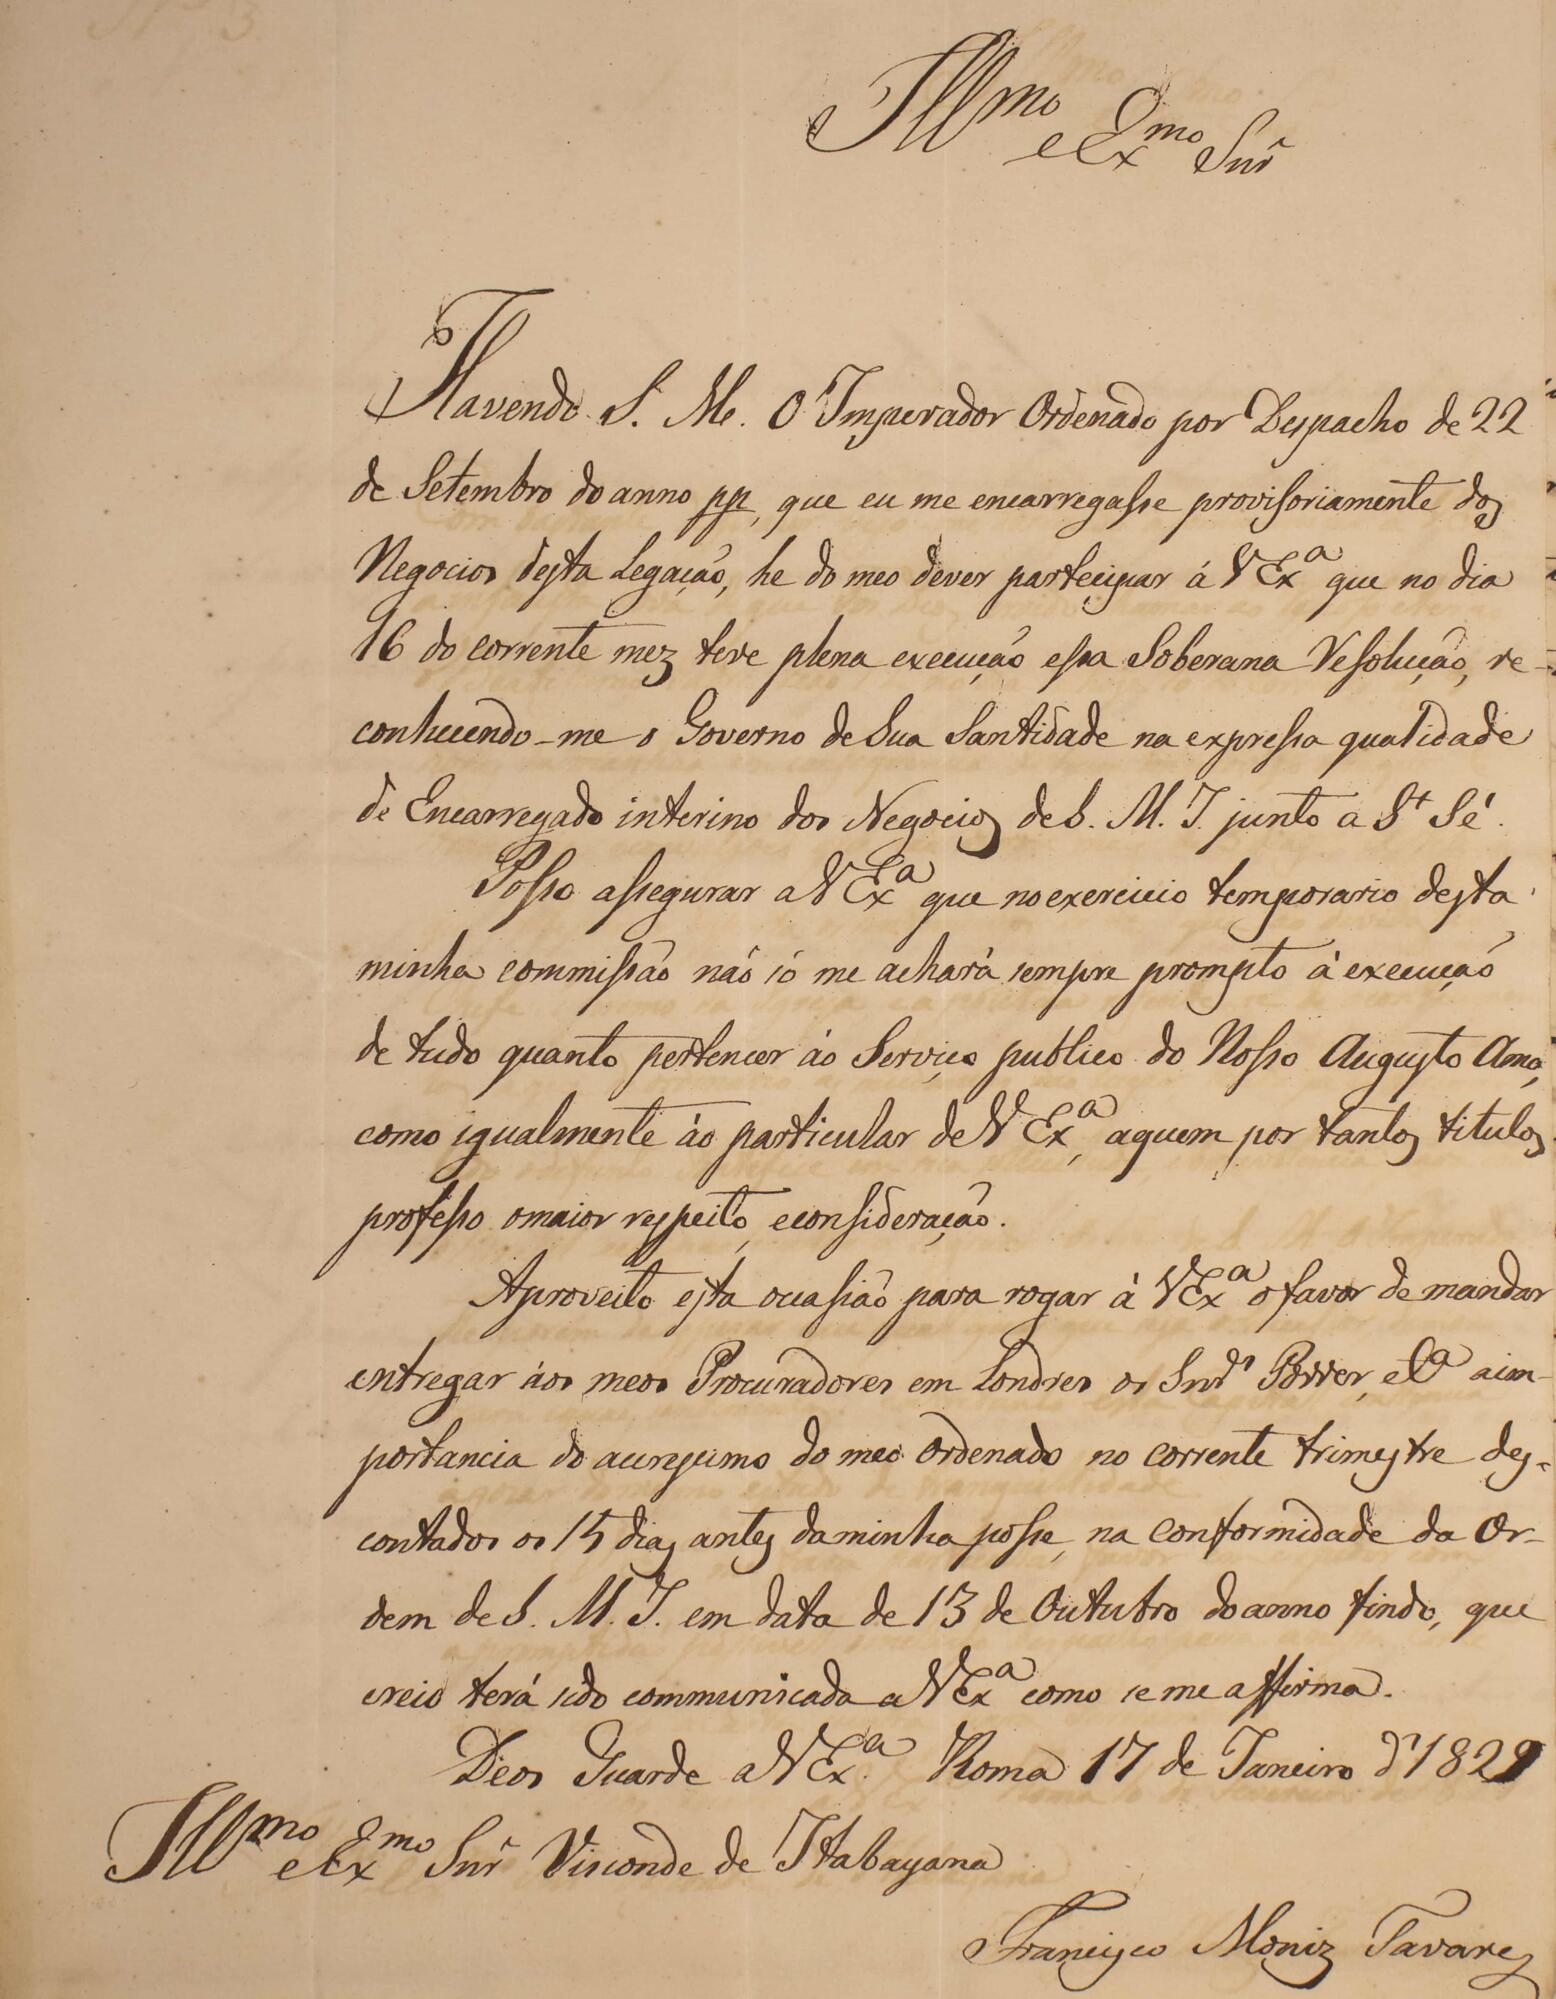 Illmo e Exmo Snr
Havendo S. M. O Imperador Ordenado por Despacho de 22
de Setembro do anno pp, que eu me encarregasse provisoriamente dos
Negocios desta Legação, he do meo dever partecipar á V Exa que no dia
16 do corrente mez teve plena execução essa Soberana Resolução, re-
conhecendo-me o Governo de Sua Santidade na expressa qualidade
de Encarregado interino dos Negocios de S. M. I. junto a St Sé.
Posso assegurar a V Exa que no exercicio temporario desta
minha commissão não só me achará sempre prompto á execução
de tudo quanto pertencer áo Serviço publico do Nosso Augusto Amo,
como igualmente áo particular de V Exa, a quem por tantos titulos
professo o maior respeito, e consideração.
Aproveito esta occasião para rogar á V Exa o favor de mandar
entregar áos meos Procuradores em Londres os Snrs Power, e Ca a im-
portancia do acrescimo do meo Ordenado no corrente trimestre des-
contados os 15 dias antes da minha posse, na conformidade da Or-
dem de S. M. I. em data de 13 de Outubro do anno findo, que
creio terá sido communicada a V Exa como se me affirma.
Deos Guarde a V Exa. Roma 17 de Janeiro d' 1829
Illmo e Exmo Snr Visconde de Itabayana
Francisco Moniz Tavares